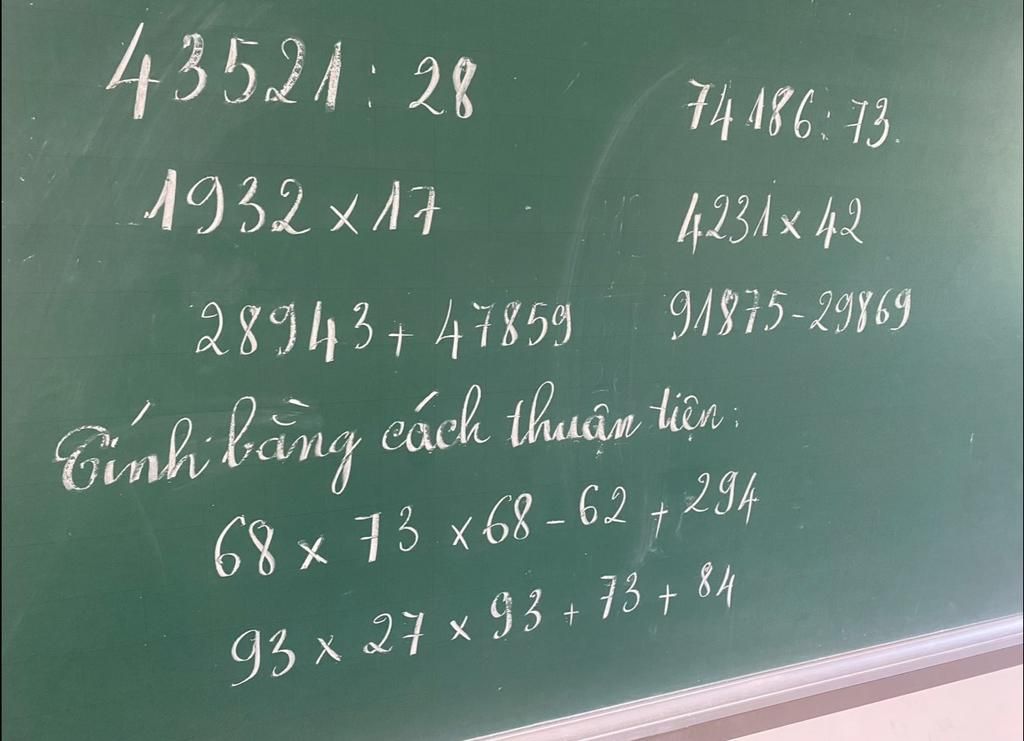 43521 : 28
74186 : 73.
1932 x 17
4231 x 42
28943 + 47859
91875 - 29869
Tính bằng cách thuận tiện:
68 x 73 x 68 - 62 + 294
93 x 27 x 93 + 73 + 84